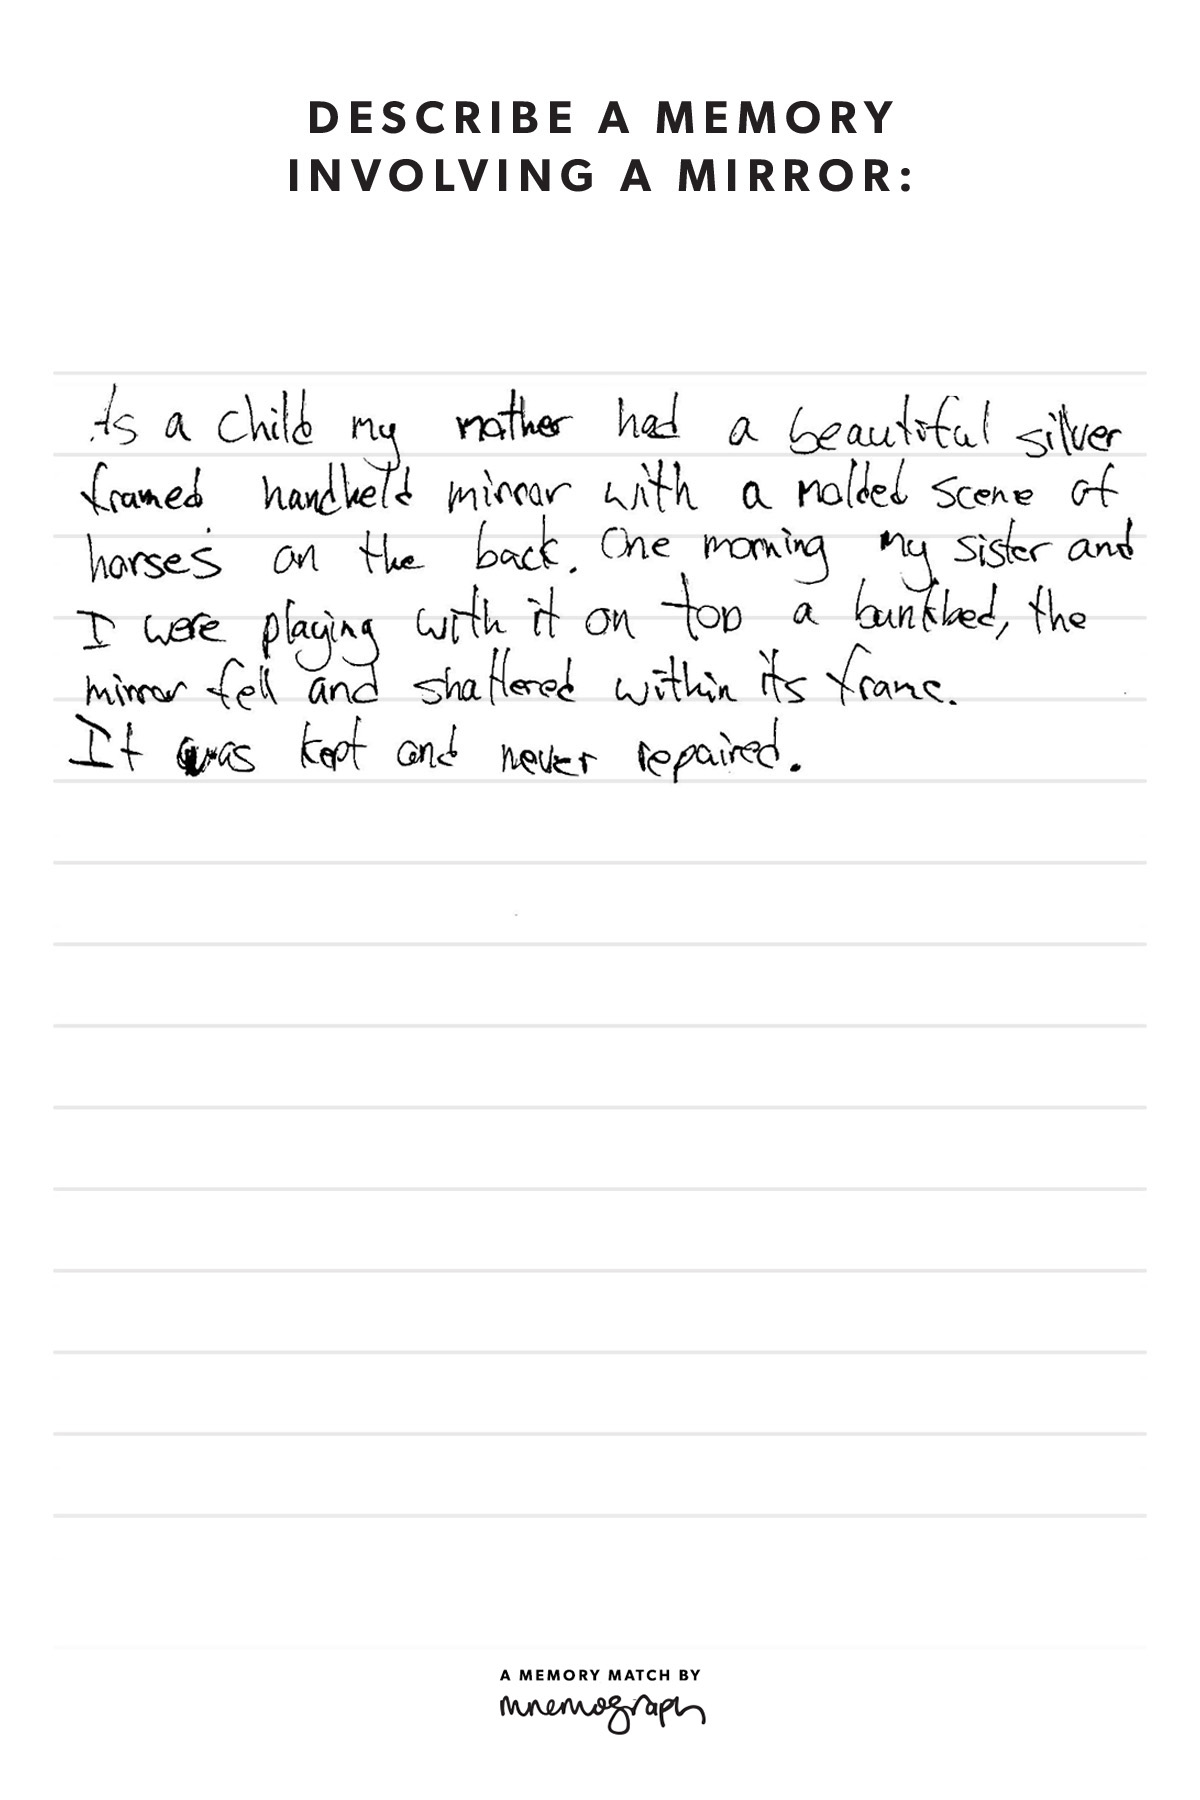 DESCRIBE A MEMORY
INVOLVING A MIRROR:
As a child my mother had a beautiful silver
framed handheld mirror with a molded scene of
horses on the back. One morning my sister and
I were playing with it on top a bunkbed, the
mirror fell and shattered within its frame.
It was kept and never repaired.
A MEMORY MATCH BY
mnemograph